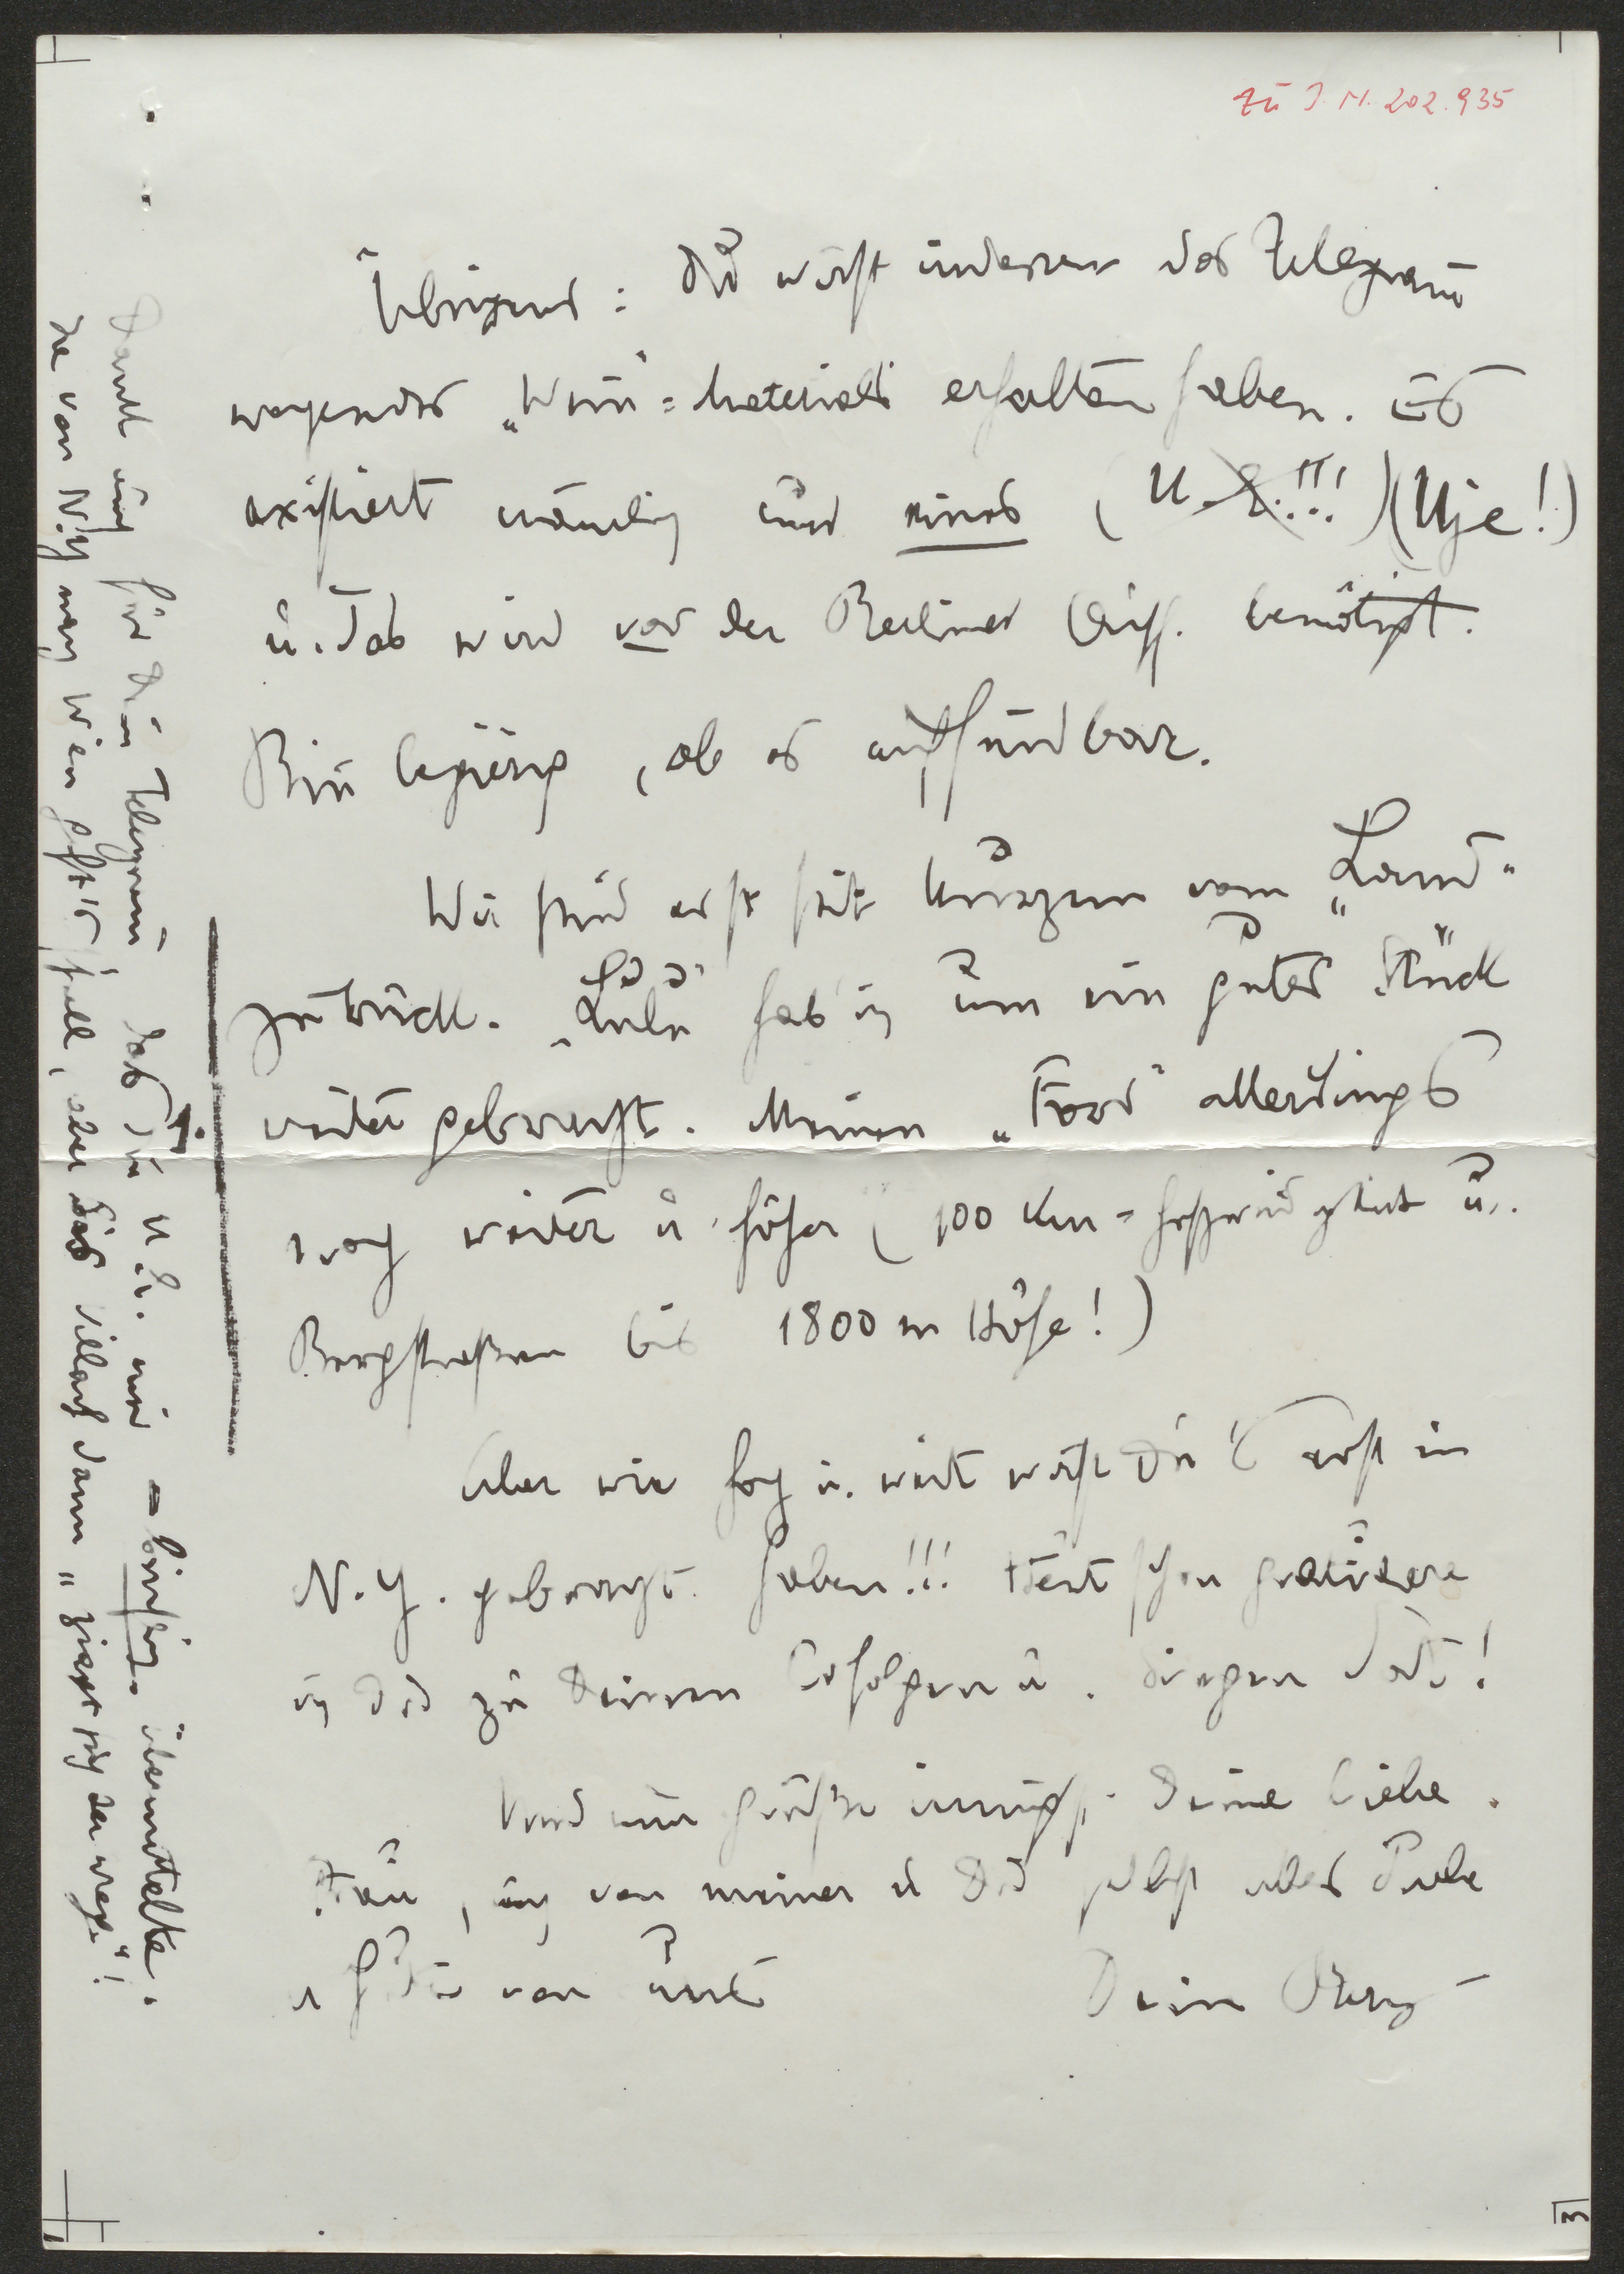 zu I.N. 202.935
Übrigens: Du wirst indessen das Telegramm
wegen des „Wein"=Materials erhalten haben. Es
existiert nämlich nur eines (U.E.!!!) (Uje!)
u. das wird vor der Berliner Auff. benötigt.
Bin begierig, ob es auffindbar.
Wir sind erst seit kurzem vom „Land"
zurück. „Lulu" hab' ich um ein gutes Stück
weiter gebracht. Meinen „Ford" allerdings
noch weiter u. höher (100 Km=Geschwindigkeit u.
Bergstraßen bis 1800 m Höhe!)
Aber wie hoch u. weit wirst Du es erst in
N.Y. gebracht haben!!! Heut schon gratuliere
ich Dir zu Deinen Erfolgen u. Siegen dort!
Und nun grüße innigst Deine liebe
Frau, auch von meiner u. Dir selbst alles Liebe
u. Gute von Eurem
Dein Berg
Dank auch für Dein Telegramm das Du U.E. mir – brieflich übermittelte.
Je von N.Y. nach Wien geht es schnell, aber bis Villach dann „zieht sich der Weg"!